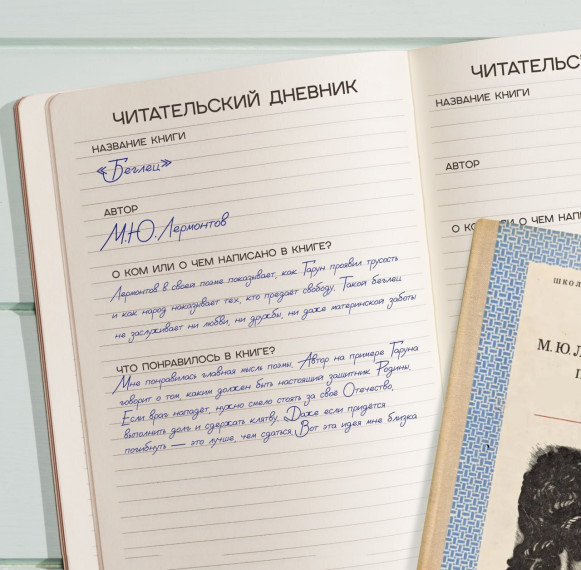 ЧИТАТЕЛЬСКИЙ ДНЕВНИК
НАЗВАНИЕ КНИГИ
«Беглец»
АВТОР
М.Ю. Лермонтов
О КОМ ИЛИ О ЧЕМ НАПИСАНО В КНИГЕ?
Лермонтов в своей поэме показывает, как Гарун проявил трусость
и как народ наказывает тех, кто предаёт свободу. Такой беглец
не заслуживает ни любви, ни дружбы, ни даже материнской заботы
ЧТО ПОНРАВИЛОСЬ В КНИГЕ?
Мне понравилась главная мысль поэмы. Автор на примере Гаруна
говорит о том, каким должен быть настоящий защитник Родины.
Если враг нападёт, нужно смело стоять за своё Отечество,
выполнить долг и сдержать клятву. Даже если придётся
погибнуть — это лучше, чем сдаться. Вот эта идея мне близка
ЧИТАТЕЛЬС
НАЗВАНИЕ КНИГИ
АВТОР
О КО ЛИ О ЧЕМ НАПИ
ШКОЛ
М.Ю.Л
П